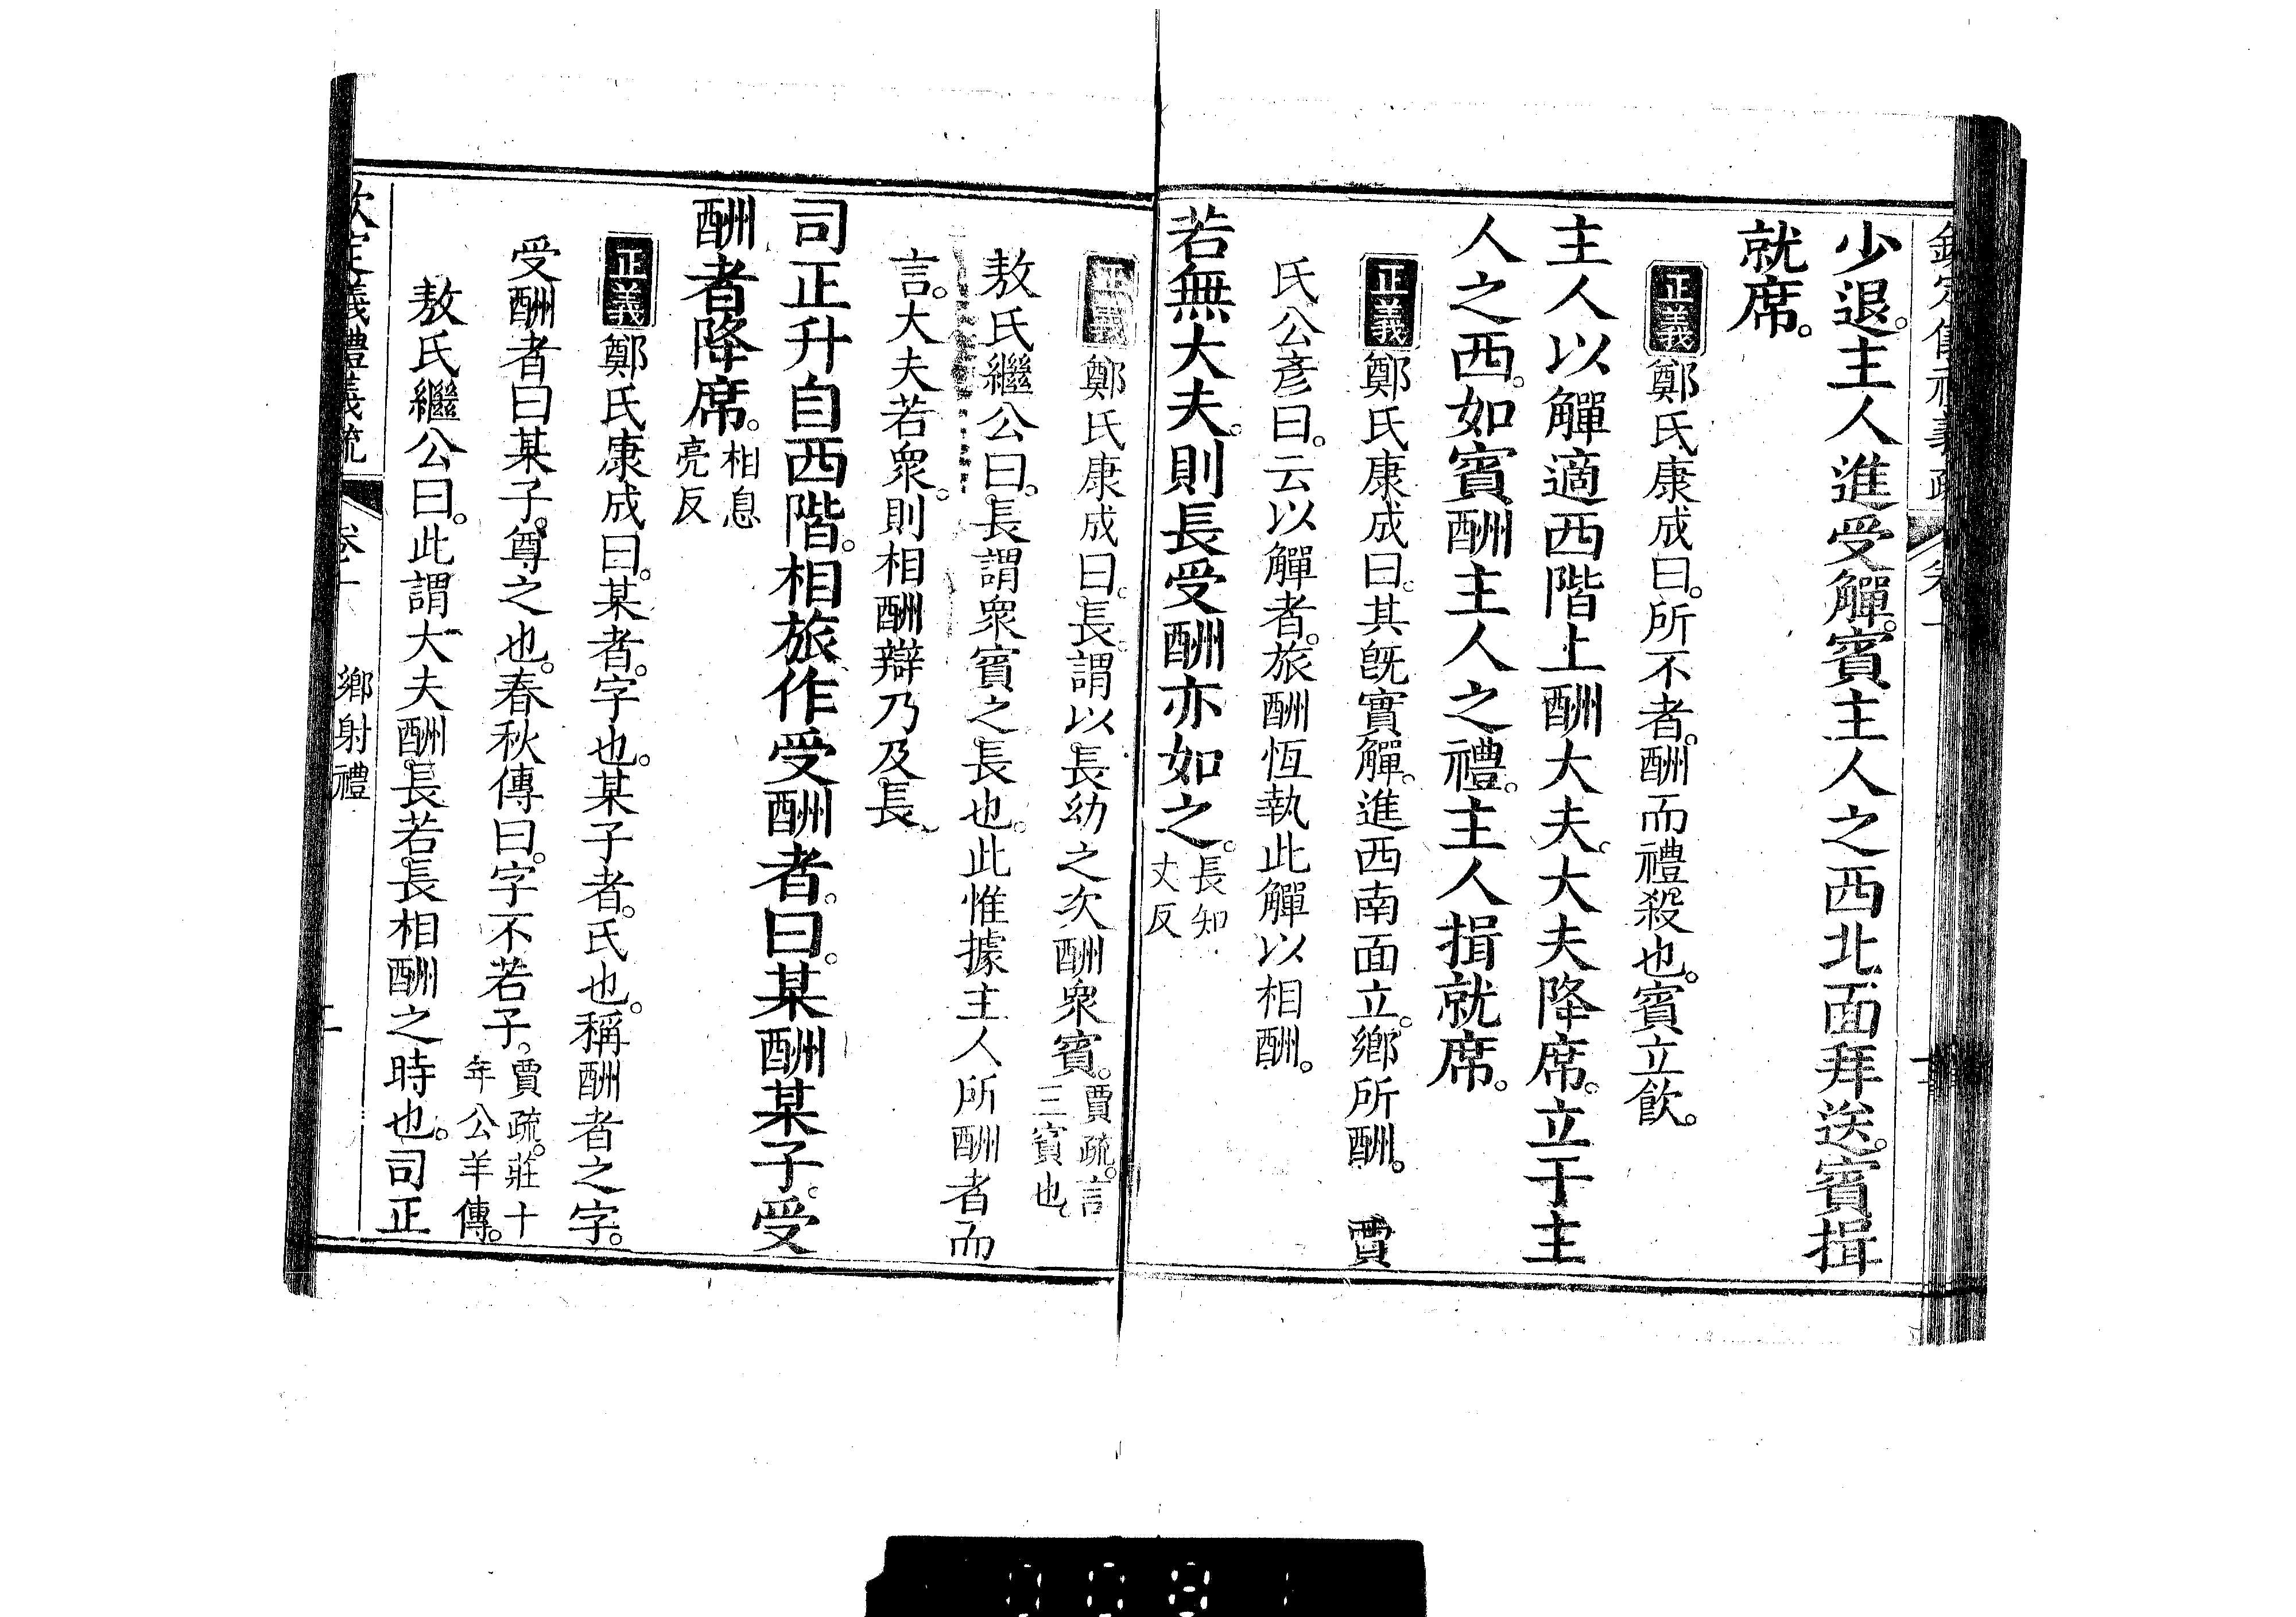 欽定儀禮義疏
卷十
少退。主人進受觶。賓主人之西北面拜送。賓揖
就席。
正義鄭氏康成曰。所不者。酬而禮殺也。賓立飮。
主人以觶適西階上酬大夫。大夫降席。立于主
人之西。如賓酬主人之禮。主人揖就席。
正義鄭氏康成曰。其旣實觶。進西南面立。鄉所酬。 賈
氏公彥曰。云以觶者。旅酬恆執此觶以相酬。
若無大夫。則長受酬亦如之。長知
丈反
正義鄭氏康成曰。長。謂以長幼之次酬衆賓。賈疏。言
三賓也。
敖氏繼公曰。長謂衆賓之長也。此惟據主人所酬者而
言。大夫若衆。則相酬辯乃及長。
司正升自西階。相旅作受酬者。曰。某酬某子。受
酬者降席。相息
亮反
正義鄭氏康成曰。某者。字也。某子者。氏也。稱酬者之字。
受酬者曰某子。尊之也。春秋傳曰。字不若子。賈疏。莊十
年公羊傳。
敖氏繼公曰。此謂大夫酬長若長相酬之時也。司正
欽定儀禮義疏
卷十
鄉射禮
二